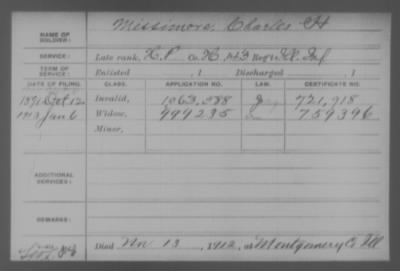 NAME OF SOLDIER: Missimore, Charles H
SERVICE: Late rank, H.P. Co. H, 143 Reg't Ill. Inf
TERM OF SERVICE: Enlisted , 1 Discharged , 1
DATE OF FILING. CLASS. APPLICATION NO. LAW. CERTIFICATE NO.
1891 Oct 12 Invalid, 1063,588 721,918
1913 Jan 6 Widow, 999235 759396
Minor,
ADDITIONAL SERVICES:
REMARKS:
Died Nov 13, 1912, at Montgomery Co Ill